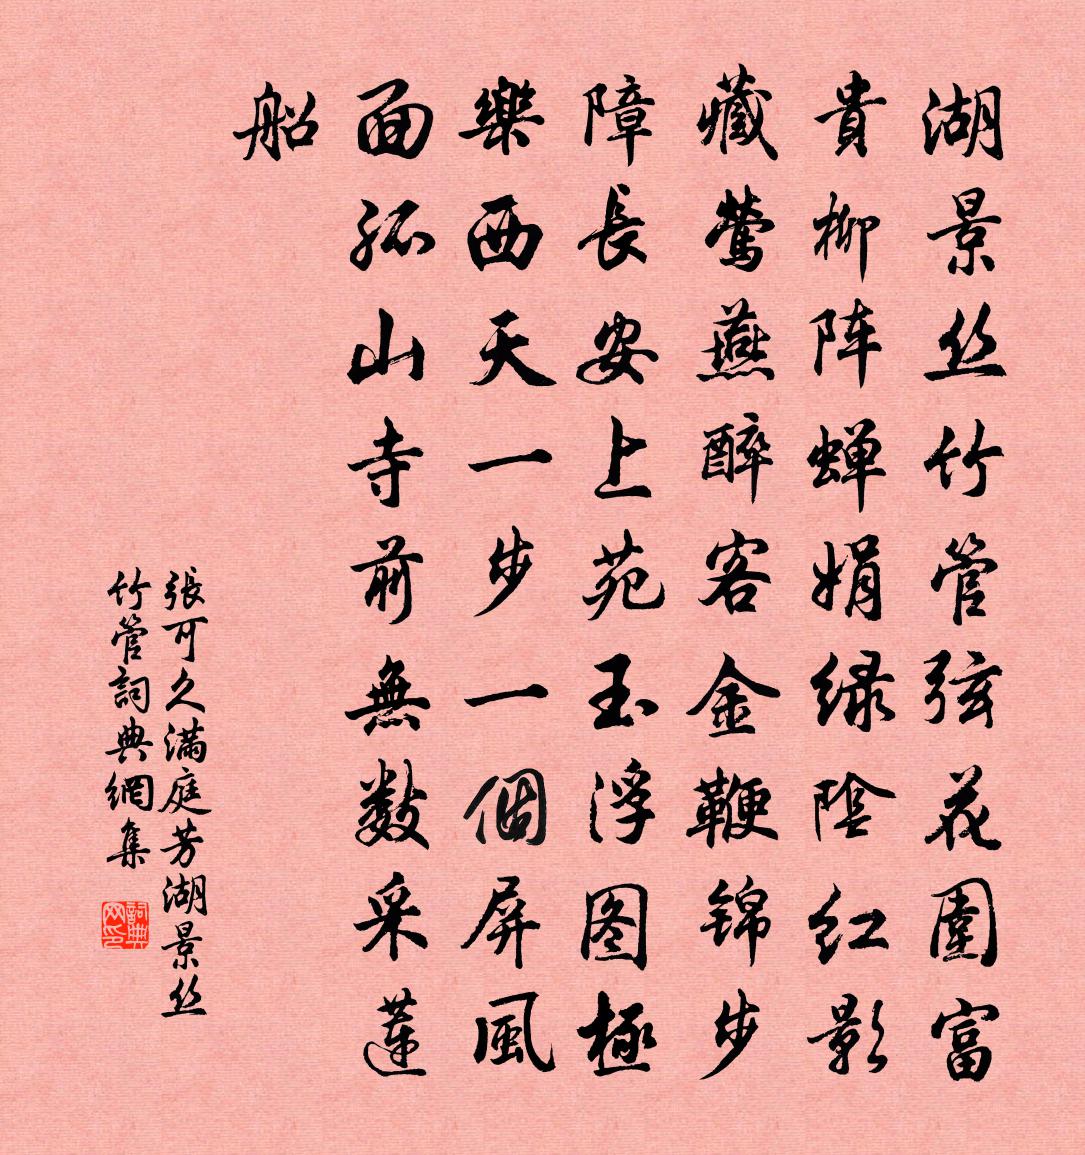 湖景丝竹管弦花園富
貴柳阵蝉娟绿陰红影
藏鶯燕醉客金鞭锦步
障長安上苑玉浮图極
樂西天一步一個屏風
面孤山寺前無数采蓮
船
張可久满庭芳湖景丝
竹管詞典網集
詞典网印